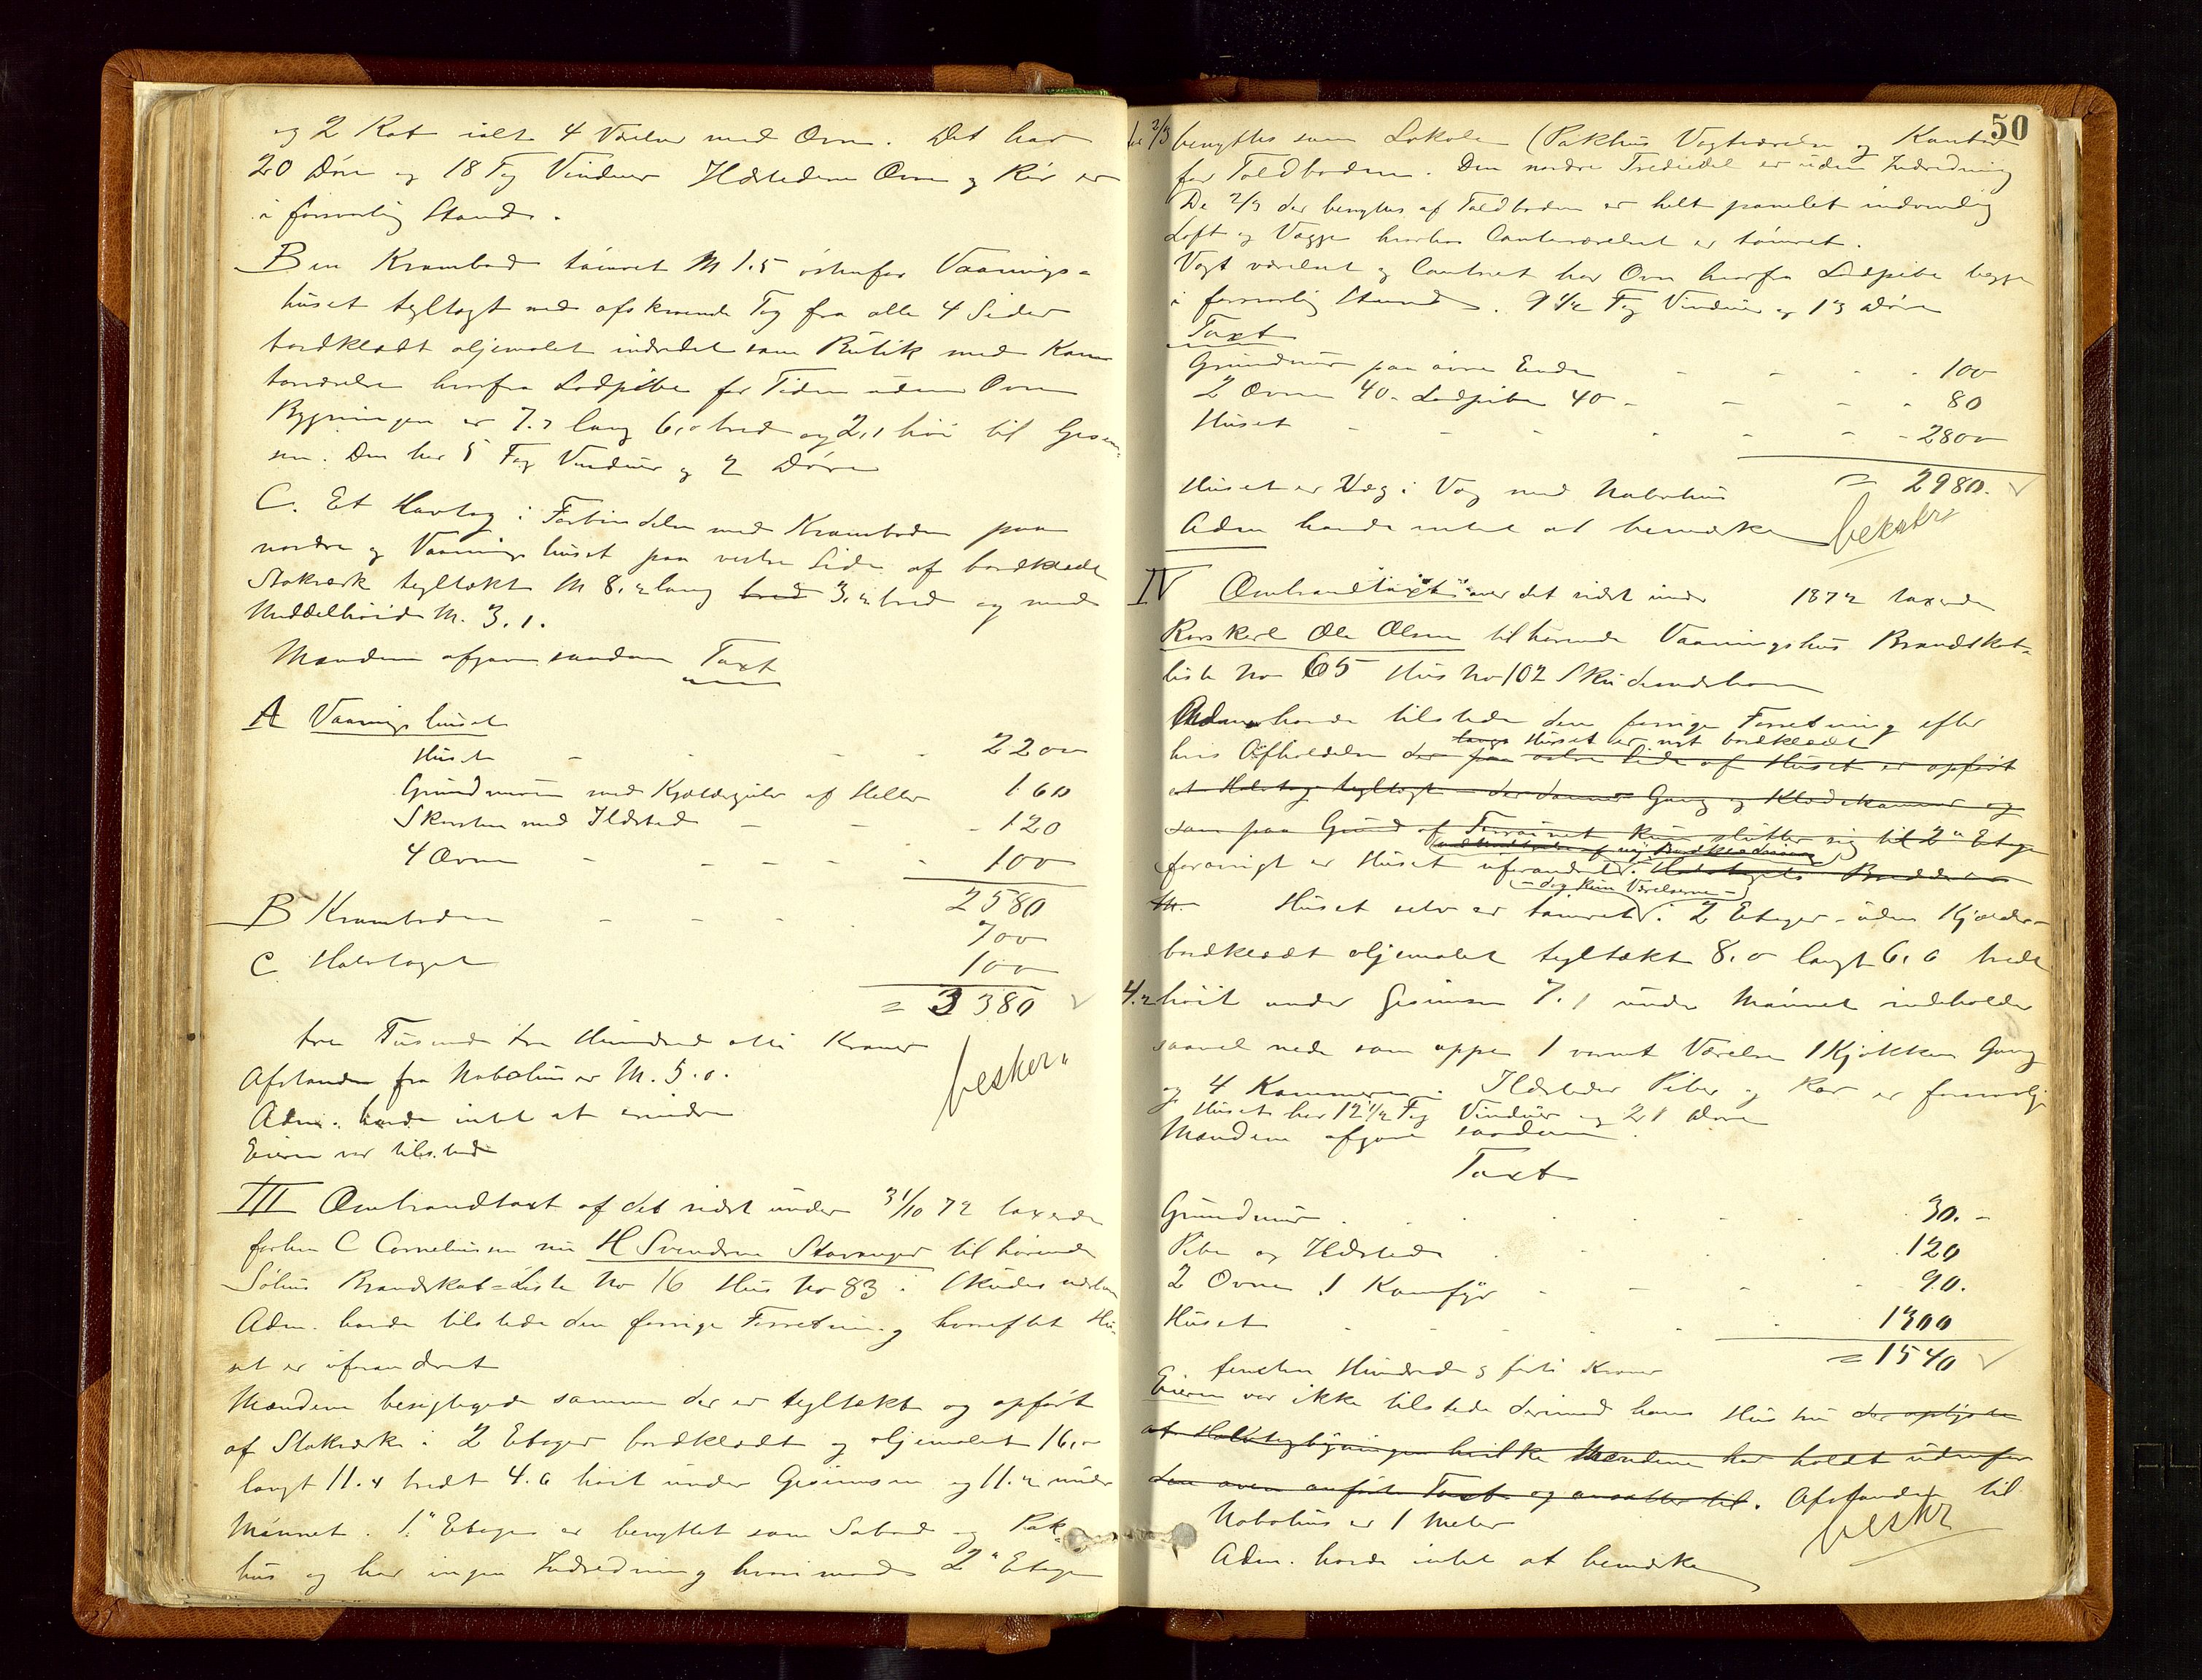 og 2 Kot ialt 4 Værelser med Ovn. Det har
20 Døre og 18 Fag Vinduer Ildstederne Ovne og Rør er
i forsvarlig Stand.
B en Krambod tømret M 1.5 østenfor Vaanings-
huset tegltagt med afskraaende Tag fra alle 4 Sider
bordklædt oljemalet indredet som Butik med Kon-
torværelse hvorfra Lodpibe for Tiden uden Ovn
Bygningen er 7.7 lang 6,0 bred og 2,1 høi til Gesim-
sen. Den har 5 Fag Vinduer og 2 Døre
C. Et Halvtag i Forbindelse med Kramboden paa
nordre og Vaaningshuset paa vestre Side af bordklædt
Stokværk tegltækt M 8,2 lang bred 3,2 bred og med
Middelhøide M. 3.1.
Mændene afgave saadan Taxt
A Vaaningshuset
Huset - - - - 2200
Grundmuren med Kjældergulv af Heller 160
Skorsten med Ildsted - - - 120
4 Ovne - - - - - 100
2580
B Kramboden - - - 700
C Halvtaget 100
= 3380
tre Tusinde tre Hundrede otti Kroner
Afstanden fra Nabohus er M. 5.0.
beskr.
Adm. havde intet at erindre
Eieren var tilstede
III Ombrandtaxt af det sidst under 31/10 72 taxerede
forhen C Corneliussen nu H Svendsen Stavanger tilhørende
Søhus Brandskat-Liste No 16 Hus No 83 i Skudesneshavn
Adm. havde tilstede den forrige Forretning hvorefter Hu-
set er uforandret
Mændene besigtigede samme der er tegltækt og opført
af Stokværk i 2 Etager bordklædt og oljemalet 16,0
langt 11.4 bredt 4.6 høit under Gesimsen og 11.2 under
Mønnet. 1" Etage er benyttet som Søbod og Pak-
hus og har ingen Indredning hvorimod 2" Etage
50
de 2/3 benyttes som Lokale (Pakhus Vagtværelse og Kontor
for Toldboden. Den nordre Trediedel er uden Indredning
De 2/3 der benyttes af Toldboden er helt panelet indvendig
Loft og Vægge hvorhos Contorværelset er tømret.
Vagtværelset og Contoret har Ovn hvorfra Lodpibe begge
i forsvarlig Stand. 9 1/2 Fag Vinduer og 13 Døre
Taxt
Grundmur paa øvre Ende - - - - 100
2 Ovne 40. Lodpiben 40 - - - - 80
Huset - - - - - - 2800
= 2980.
Huset er Væg i Væg med Nabohus
Adm havde intet at bemærke
beskr
IV Ombrandtaxt over det sidst under 1872 taxerede
Rorskarl Ole Olsen tilhørende Vaaningshus Brandskat-
liste No 65 Hus No 102 Skudesneshavn
Adm. havde tilstede den forrige Forretning efter
Huset er nyt bordklædt
hvis Afholdelse der paa østre Side af Huset er opført
et Halvtag tegltagt der danner Gang og Klædekammer og
som paa Grund af Terrainet kun slutter sig til 2" Etage
forøvrigt er Huset uforandret. Halvtagets Bredde er
- dog kun Værelserne -
M. Huset selv er tømret i 2 Etager - uden Kjælder -
bordklædt oljemalet tegltækt 8,0 langt 6,0 bredt
4.2 høit under Gesimsen 7.1 under Mønnet indeholder
saavel nede som oppe 1 varmt Værelse 1 Kjøkken Gang
og 4 Kammere. Ildsteder Piber og Rør er forsvarlig
Huset har 12 1/2 Fag Vinduer og 21 Døre
Mændene afgave saadan
Taxt
Grundmur 30.-
Pibe og Ildsted 120
2 Ovne 1 Komfyr - - - 90.
Huset 1300
= 1540
femten Hundrede og firti Kroner
Eieren var ikke tilstede derimod hans Hustru der oplyste
at Halvtagbygningen hvilke Mændene har holdt udenfor
den oven anførte Taxt og ansatte til. Afstanden til
Nabohus er 1 Meter
beskr
Adm. havde intet at bemærke